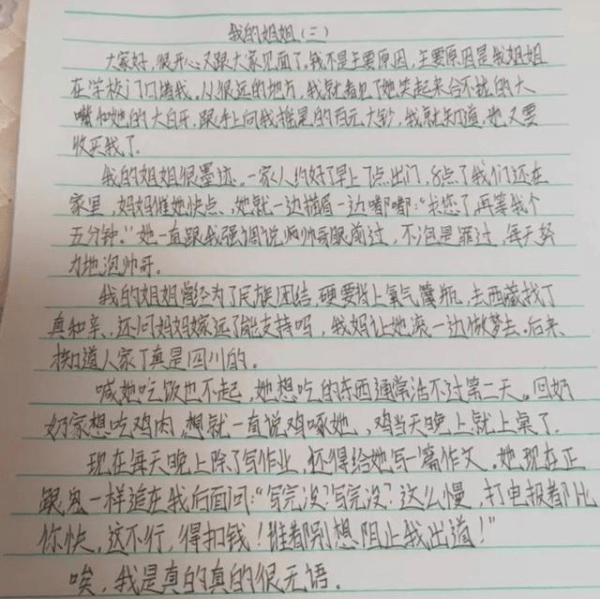 我的姐姐(二)
大家好,很开心又跟大家见面了。我不是主要原因,主要原因是我姐姐
在学校门口堵我。从很远的地方,我就看见了她笑起来合不拢的大
嘴和她的大白牙,跟手上向我摇晃的百元大钞,我就知道,她又要
收买我了。
我的姐姐很墨迹。一家人约好了早上7点出门,8点了我们还在
家里,妈妈催她快点、她就一边描眉一边嘟嘟:“求您了,再等我个
五分钟。”她一直跟我强调说帅哥眼前过,不泡是罪过,每天努
力地泡帅哥。
我的姐姐曾经为了民族团结,硬要背上氧气瓶,去西藏找丁
真和亲、还问妈妈嫁远了能支持吗,我妈让她滚一边做梦去。后来
才知道人家丁真是四川的。
喊她吃饭也不起,她想吃的东西通常活不过第二天。回奶
奶家想吃鸡肉,想就一直说鸡啄她,鸡当天晚上就上桌了。
现在每天晚上除了写作业,还得给她写一篇作文。她现在正
跟鬼一样追在我后面问:“写完没?写完没?这么慢,打电报都比
你快,这不行,得扣钱!谁都别想阻止我出道!”
唉,我是真的真的很无语。